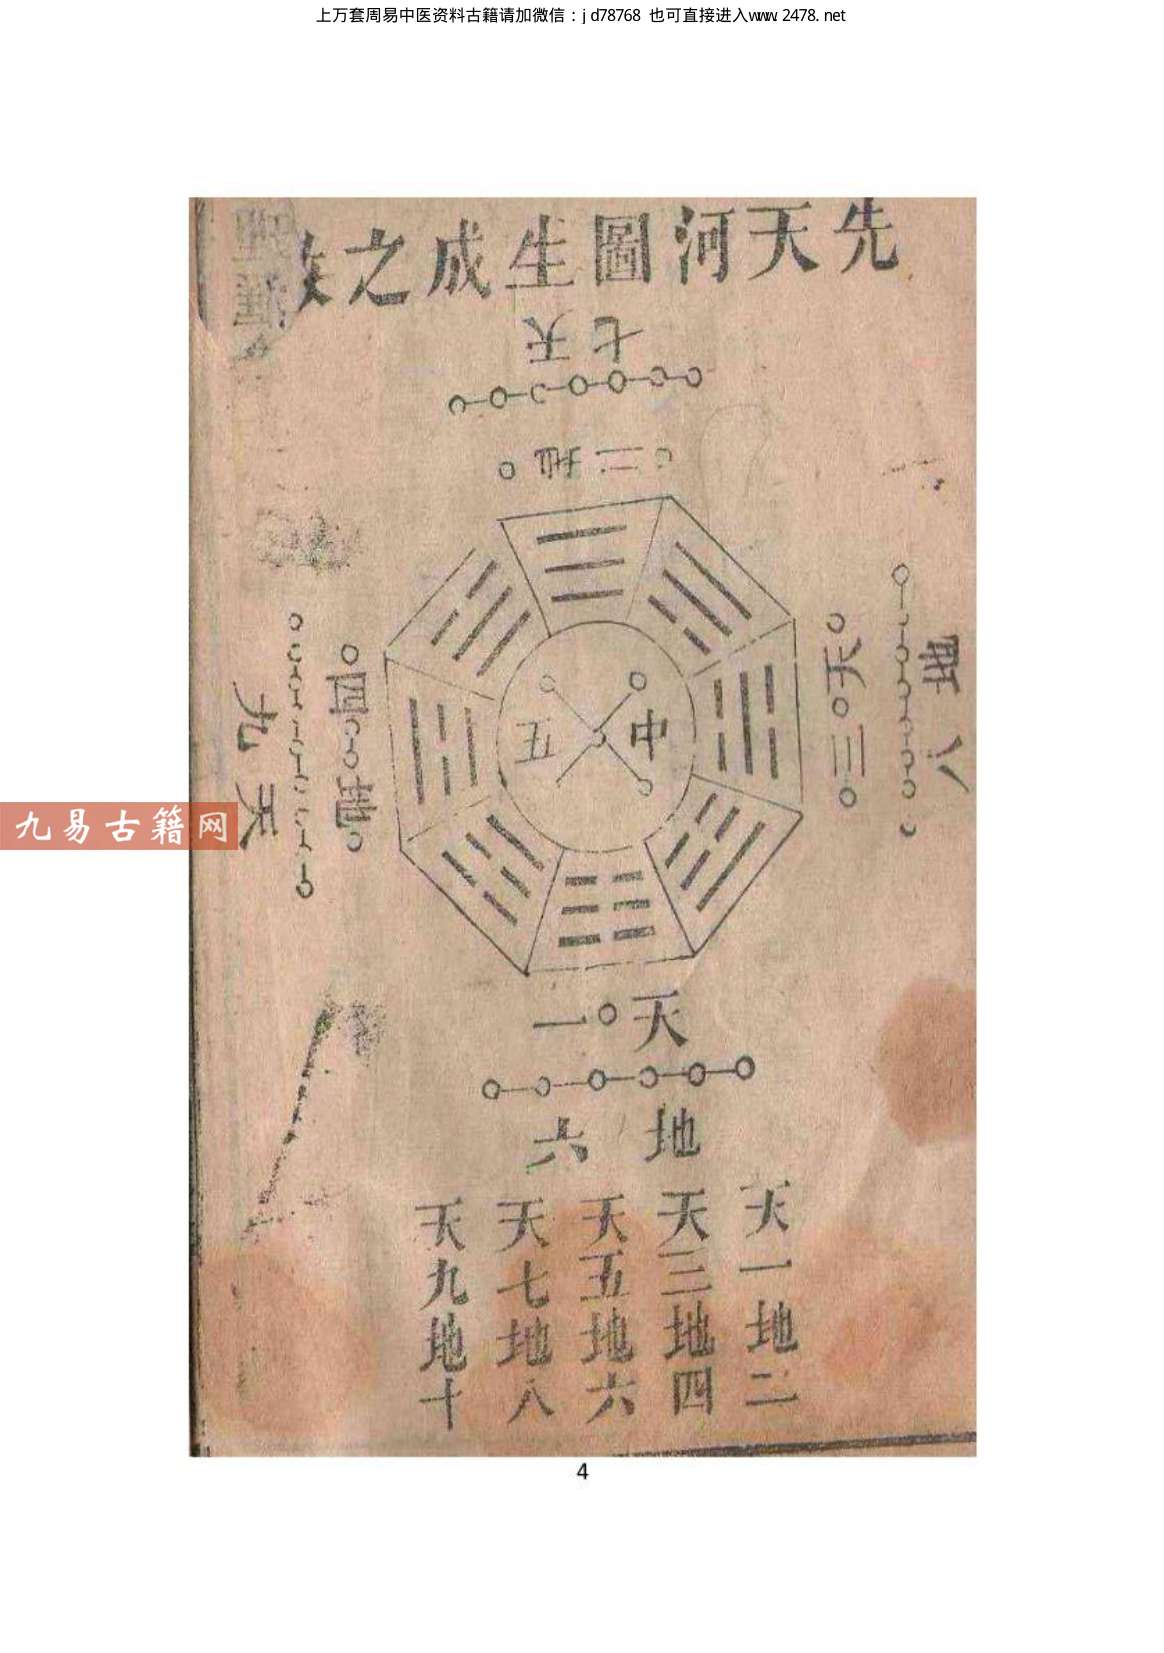 上万套周易中医资料古籍请加微信：jd78768 也可直接进入www.2478.net
先天河圖生成之数
天七
地二
天三
地八
地四
天九
中五
天一
地六
天一地二
天三地四
天五地六
天七地八
天九地十
九易古籍网
4